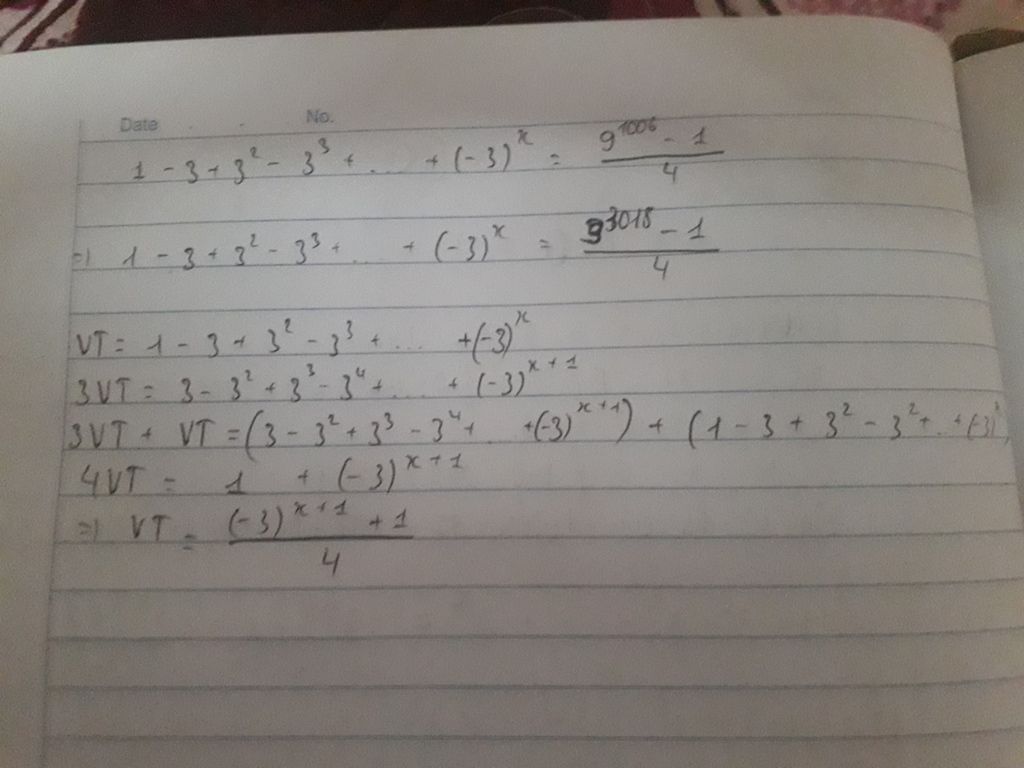 Date No.
1 - 3 + 3² - 3³ + ... + (-3)^x = (9^1006 - 1)/4
=> 1 - 3 + 3² - 3³ + ... + (-3)^x = (9^3018 - 1)/4
VT = 1 - 3 + 3² - 3³ + ... + (-3)^x
3VT = 3 - 3² + 3³ - 3⁴ + ... + (-3)^(x+1)
3VT + VT = (3 - 3² + 3³ - 3⁴ + ... + (-3)^(x+1)) + (1 - 3 + 3² - 3² + .. + (-3)
4VT = 1 + (-3)^(x+1)
=> VT = ((-3)^(x+1) + 1)/4